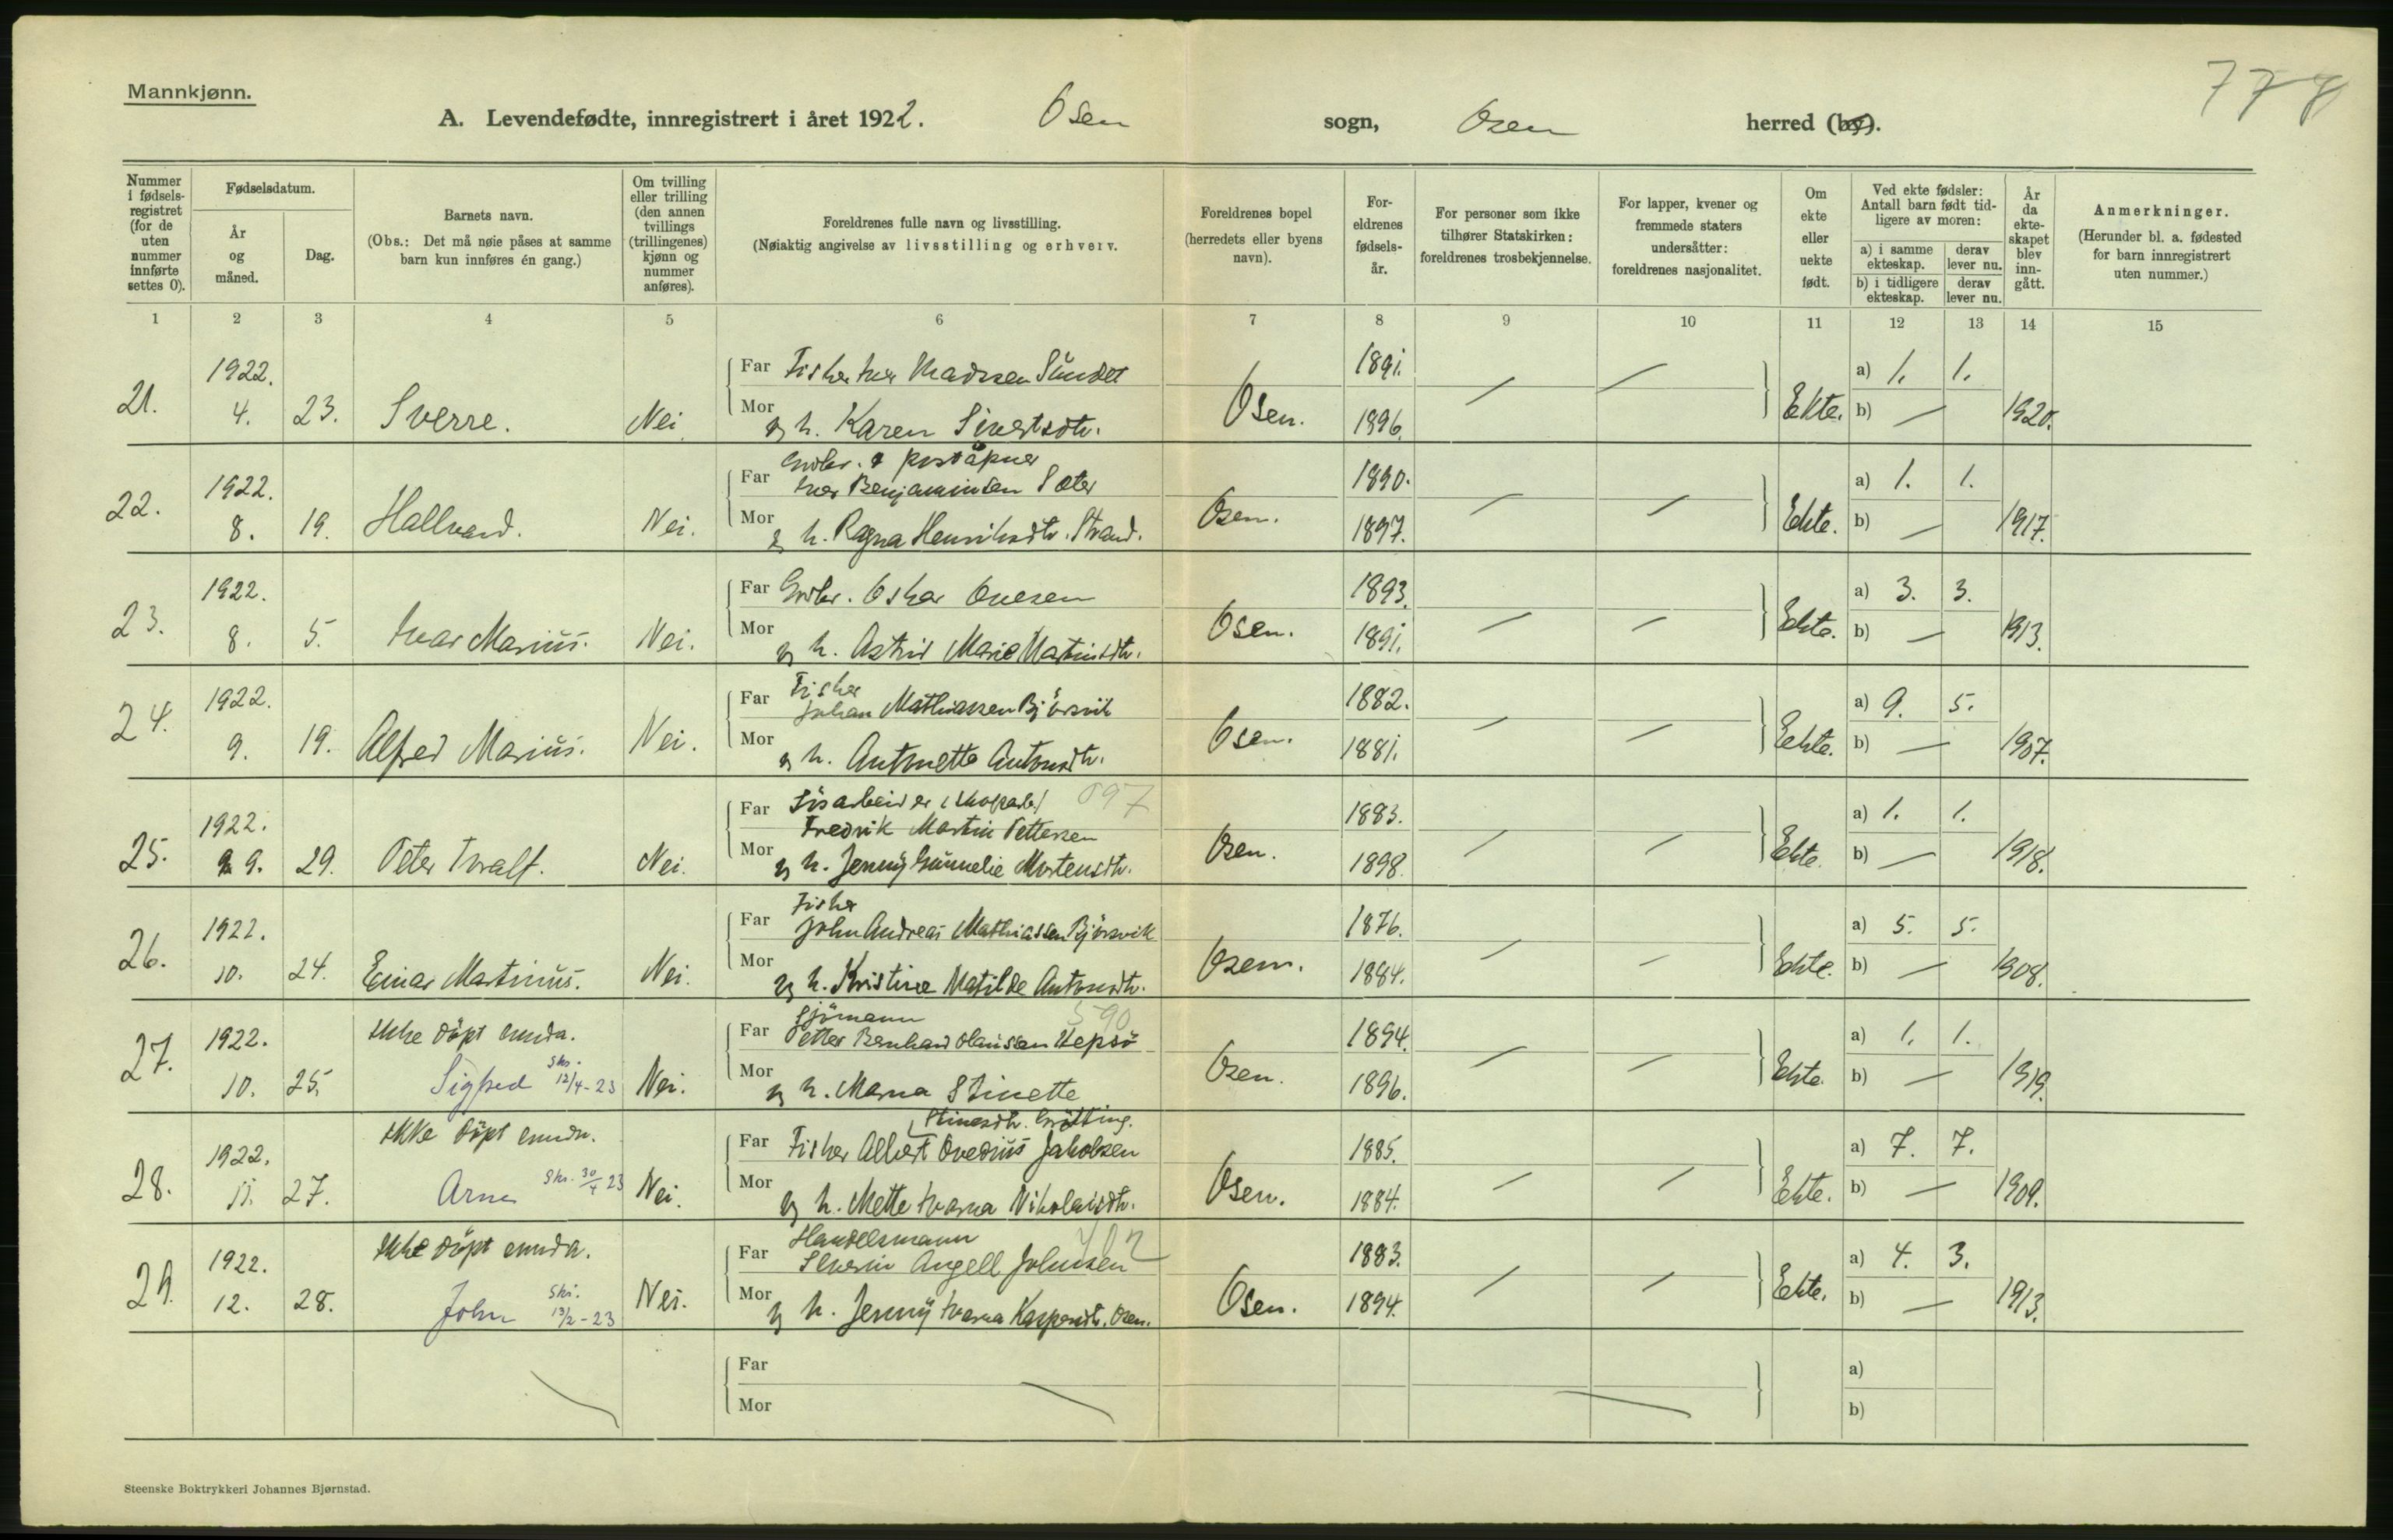 Mannkjønn.
778
A. Levendefødte, innregistrert i året 1922. Osen sogn, Osen herred (by).
Nummer i fødsels-registret (for de uten nummer innførte settes 0).
Fødselsdatum.
År og måned.
Dag.
Barnets navn.
(Obs.: Det må nøie påses at samme barn kun innføres én gang.)
Om tvilling eller trilling (den annen tvillings (trillingenes) kjønn og nummer anføres).
Foreldrenes fulle navn og livsstilling.
(Nøiaktig angivelse av livsstilling og erhverv.
Foreldrenes bopel (herredets eller byens navn).
For-eldrenes fødsels-år.
For personer som ikke tilhører Statskirken: foreldrenes trosbekjennelse.
For lapper, kvener og fremmede staters undersåtter: foreldrenes nasjonalitet.
Om ekte eller uekte født.
Ved ekte fødsler: Antall barn født tid-ligere av moren:
a) i samme ekteskap.
derav lever nu.
b) i tidligere ekteskap.
derav lever nu.
År da ekte-skapet blev inn-gått.
Anmerkninger.
(Herunder bl. a. fødested for barn innregistrert uten nummer.)
1 2 3 4 5 6 7 8 9 10 11 12 13 14 15
21. 1922. 4. 23. Sverre. Nei
Far Fisker Iver Madssen Sundet
Mor og h. Karen Sivertsdtr.
Osen. 1891. 1896. — — Ekte. a) 1. 1. b) — 1920.
22. 1922. 8. 19. Hallvard. Nei.
Gårdbr. & poståpner
Far Iver Benjaminsen Sæter
Mor og h. Ragna Henriksdtr. Strand.
Osen. 1890. 1897. — — Ekte. a) 1. 1. b) — 1917.
23. 1922. 8. 5. Ivar Marius. Nei.
Far Gårdbr. Oskar Ovesen
Mor og h. Astrid Marie Martinsdtr.
Osen. 1893. 1891. — — Ekte. a) 3. 3. b) — 1913.
24. 1922. 9. 19. Alfred Marius. Nei.
Fisker
Far Johan Mathiassen Björsvik
Mor og h. Antonette Antonsdtr.
Osen. 1882. 1881. — — Ekte. a) 9. 5. b) — 1907.
25. 1922. 9. 29. Peter Tvalf. Nei.
Far Lösarbeider 697
Fredrik Martin Pettersen
Mor og h. Jenny Gunnelie Mortensdtr.
Osen. 1883. 1898. — — Ekte. a) 1. 1. b) — 1918.
26. 1922. 10. 24. Einar Martinus. Nei.
Fisker
Far John Andreas Mathiassen Björsvik
Mor og h. Kristine Matilde Antonsdtr.
Osen. 1876. 1884. — — Ekte. a) 5. 5. b) — 1908.
27. 1922. 10. 25. Ikke döpt ennda.
Sigfred Skr. 12/4-23 Nei.
Sjömann 590
Far Petter Bernhard Olaussen Vepsö
Mor og h. Marna Stinette
Stinesdtr. Grötting.
Osen. 1894. 1896. — — Ekte. a) 1. 1. b) — 1919.
28. 1922. 11. 27. Ikke döpt ennda.
Arne Skr. 30/4 23 Nei.
Far Fisker Albert Ovedius Jakobsen
Mor og h. Mette Ivarna Nikolaisdtr.
Osen. 1885. 1884. — — Ekte. a) 7. 7. b) — 1909.
29. 1922. 12. 28. Ikke döpt ennda.
John Skr. 13/2-23 Nei.
Handelsmann
Far Severin Angell Johnsen
Mor og h. Jenny Ivarna Kaspersdtr. Osen.
Osen. 1883. 1894. — — Ekte. a) 4. 3. b) — 1913.
Far
Mor
a)
b)
Steenske Boktrykkeri Johannes Bjørnstad.